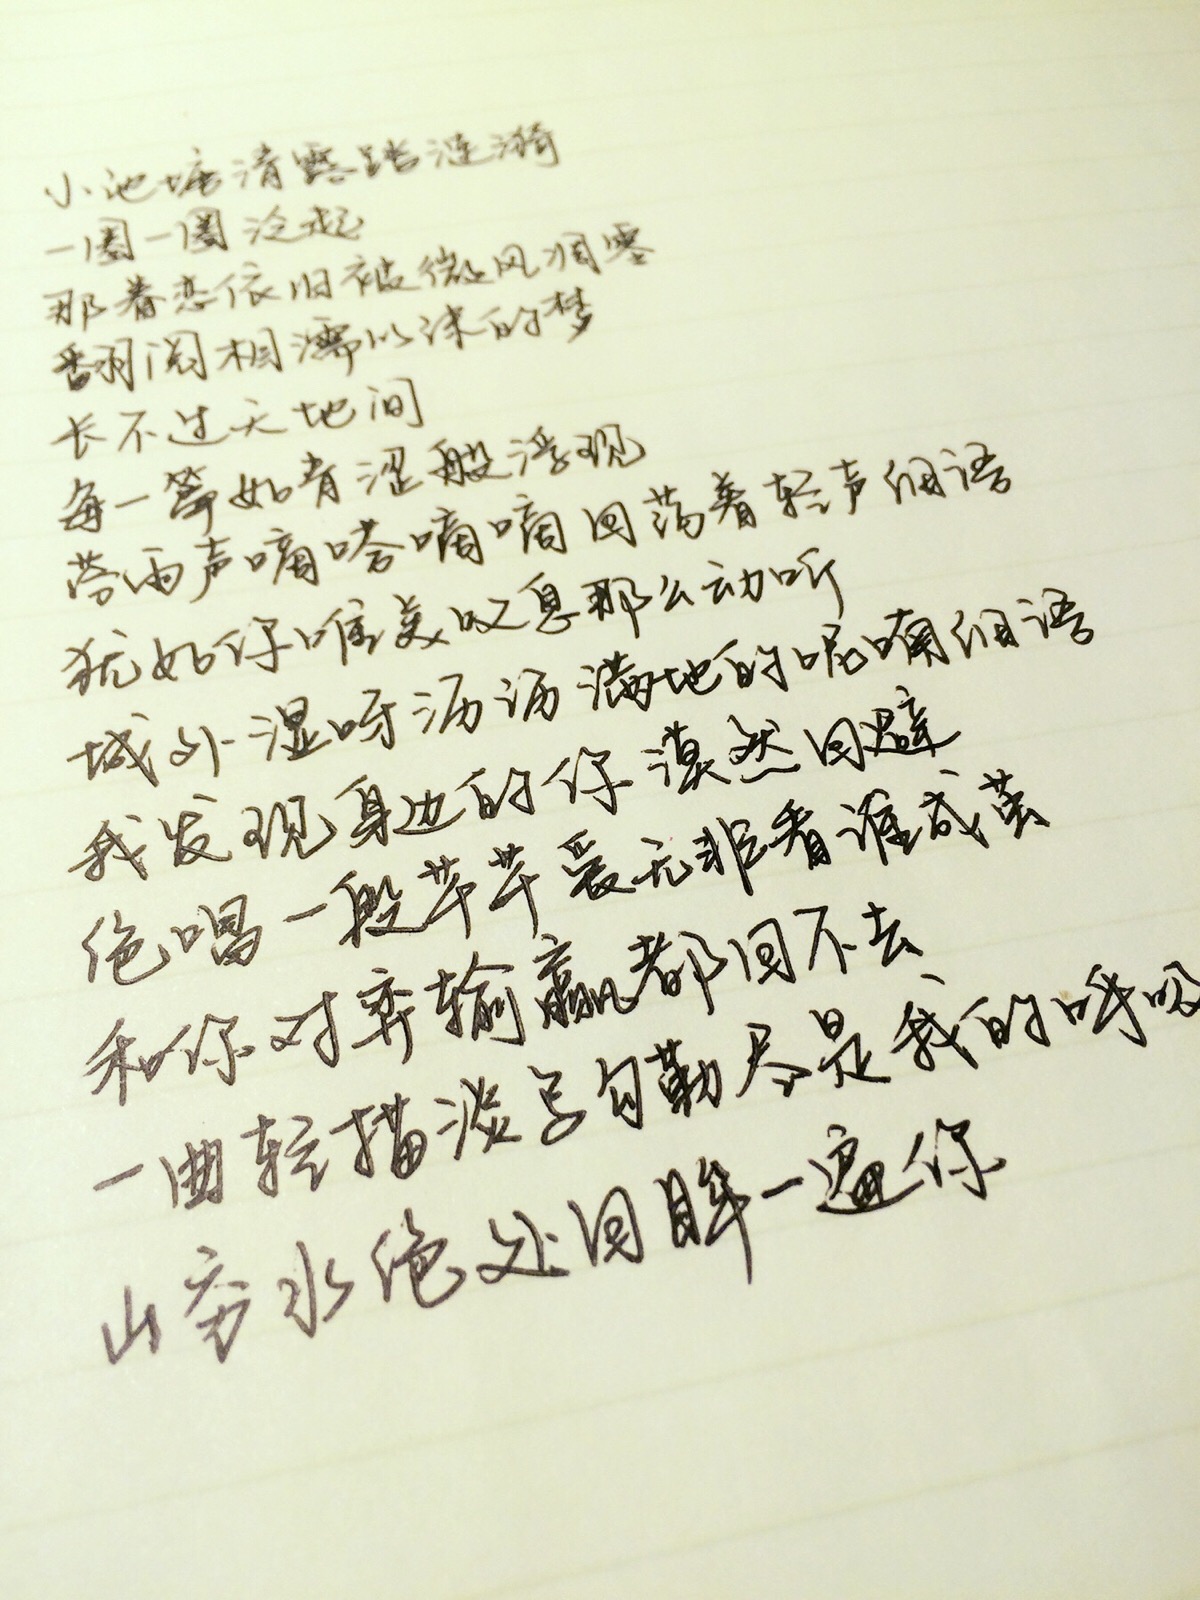 小池塘清露踏涟漪
一圈一圈泛起
那眷恋依旧被微风凋零
翻阅相濡以沫的梦
长不过天地间
每一幕如青涩般浮现
落雨声嘀嗒嘀嘀回荡着轻声细语
犹如你唯美叹息那么动听
城外湿呀沥沥满地的呢喃细语
我发现身边的你漠然回避
绝唱一段芊芊爱无非看谁成茧
和你对弈输赢都回不去
一曲轻描淡写勾勒尽是我的呼吸
山穷水绝处回眸一遍你